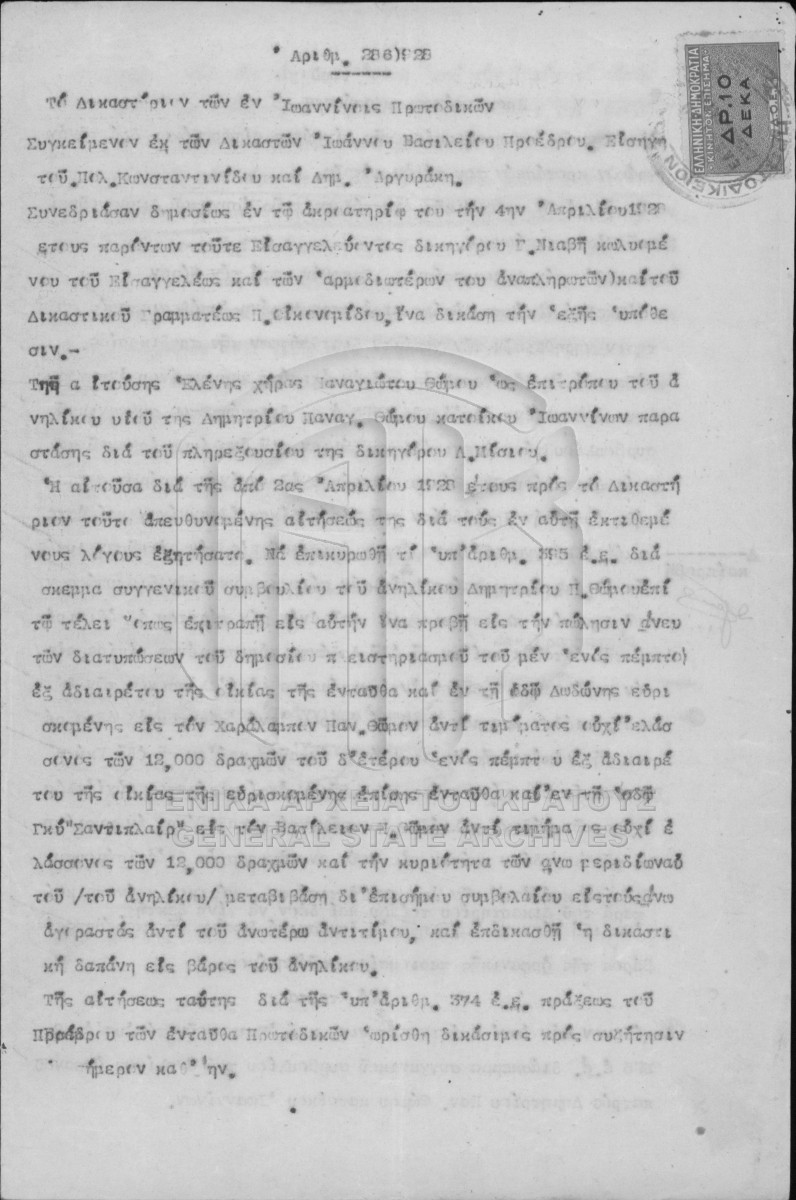 Ἀριθμ. 286)928
Τό Δικαστήριον τῶν ἐν Ἰωαννίνοις Πρωτοδικῶν
Συγκείμενον ἐκ τῶν Δικαστῶν Ἰωάννου Βασιλείου Προέδρου. Εἰσηγη
τοῦ.Πολ.Κωνσταντινίδου καί Δημ. Ἀργυράκη.
Συνεδριάσαν δημοσίως ἐν τῷ ἀκροατηρίῳ του τήν 4ην Ἀπριλίου1928
ετους παρόντων τοῦτε Εἰσαγγελεύοντος δικηγόρου Γ.Νιαβῆ κωλυομέ
νου τοῦ Εἰσαγγελέως καί τῶν ἁρμοδιωτέρων του ἀναπληρωτῶν)καίτοῦ
Δικαστικοῦ Γραμματέως Π.Οἰκονομίδου,ἵνα δικάσῃ τήν ἑξῆς ὑπόθε
σιν.-
Τηῆ α ἰτούσης Ἑλένης χήρας Παναγιώτου Θώμου ὡς ἐπιτρόπου τοῦ ἀ
νηλίκου υἱοῦ της Δημητρίου Παναγ. Θώμου κατοίκου Ἰωαννίνων παρα
στάσης διά τοῦ πληρεξουσίου της δικηγόρου Λ.Μίσιου.
Ἡ αἰτοῦσα διά τῆς ἀπό 2ας Ἀπριλίου 1928 ἔτους πρός τό Δικαστή
ριον τοῦτο ἀπευθυνομένης αἰτήσεώς της διά τούς ἐν αὐτῇ ἐκτιθεμέ
νους λόγους ἐζητήσατο. Νά ἐπικυρωθῇ τό ὑπ'ἀριθμ. 395 ἐ.ε. διά
σκεμμα συγγενικοῦ συμβουλίου τοῦ ἀνηλίκου Δημητρίου Π.Θώμουἐπί
τῷ τέλει ὅπως ἐπιτραπῇ εἰς αὐτήν ἵνα προβῇ εἰς τήν πώλησιν ἄνευ
τῶν διατυπώσεων τοῦ δημοσίου π ειστηριασμοῦ τοῦ μέν ἑνός πέμπτο)
ἐξ ἀδιαιρέτου τῆς οἰκίας τῆς ἐνταῦθα καί ἐν τῇ ὁδῷ Δωδώνης εὑρι
σκομένης εἰς τόν Χαράλαμπον Παν.Θῶμον ἀντί τιμήματος οὐχί ἐλάσ
σονος τῶν 12,000 δραχμῶν τοῦ δ'ἑτέρου ἑνός πέμπτ υ ἐξ ἀδιαιρέ
του τῆς οἰκίας τῆς εὑρισκομένης ἐπίσης ἐνταῦθα καί ἐν τῇ ὁδῷ
Γκύ"Σαντιπλαίρ" εἰς τόν Βασίλειον Π.Θῶμον ἀντί τιμήμα ος οὐχί ἐ
λάσσονος τῶν 12,000 δραχμῶν καί τήν κυριότητα τῶν ανω μεριδίωναὐ
τοῦ /τοῦ ἀνηλίκου/ μεταβιβάσῃ δι'ἐπισήμου συμβολαίου εἰςτούςἄνω
ἀγοραστάς ἀντί τοῦ ἀνωτέρω ἀντιτίμου, καί ἐπδικασθῇ ἡ δικαστι
κή δαπάνη εἰς βάρος τοῦ ἀνηλίκου.
Τῆς αἰτήσεως ταύτης διά τῆς ὑπ'ἀριθμ. 374 ἐ.ε. πράξεως τοῦ
Προέδρου τῶν ἐνταῦθα Πρωτοδικῶν ὡρίσθη δικάσιμος πρός συζήτησιν
ἡ σήμερον καθ'ἥν.
ΕΛΛΗΝΙΚΗ·ΔΗΜΟΚΡΑΤΙΑ
ΚΙΝΗΤΟΝ ΕΠΙΣΗΜΑ
ΔΡ.10
ΔΕΚΑ
ΓΕΝΙΚΑ ΑΡΧΕΙΑ ΤΟΥ ΚΡΑΤΟΥΣ
GENERAL STATE ARCHIVES